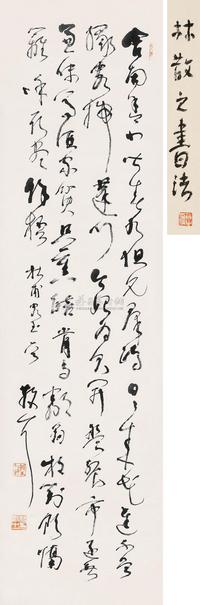 林散之書法
舍南舍北皆春水但見群鷗日日來花逕不曾
緣客掃蓬門今始為君開盤飧市遠無
兼味樽酒家貧只舊醅肯與鄰翁相對飲隔
籬呼取盡餘杯 杜甫客至 散耳